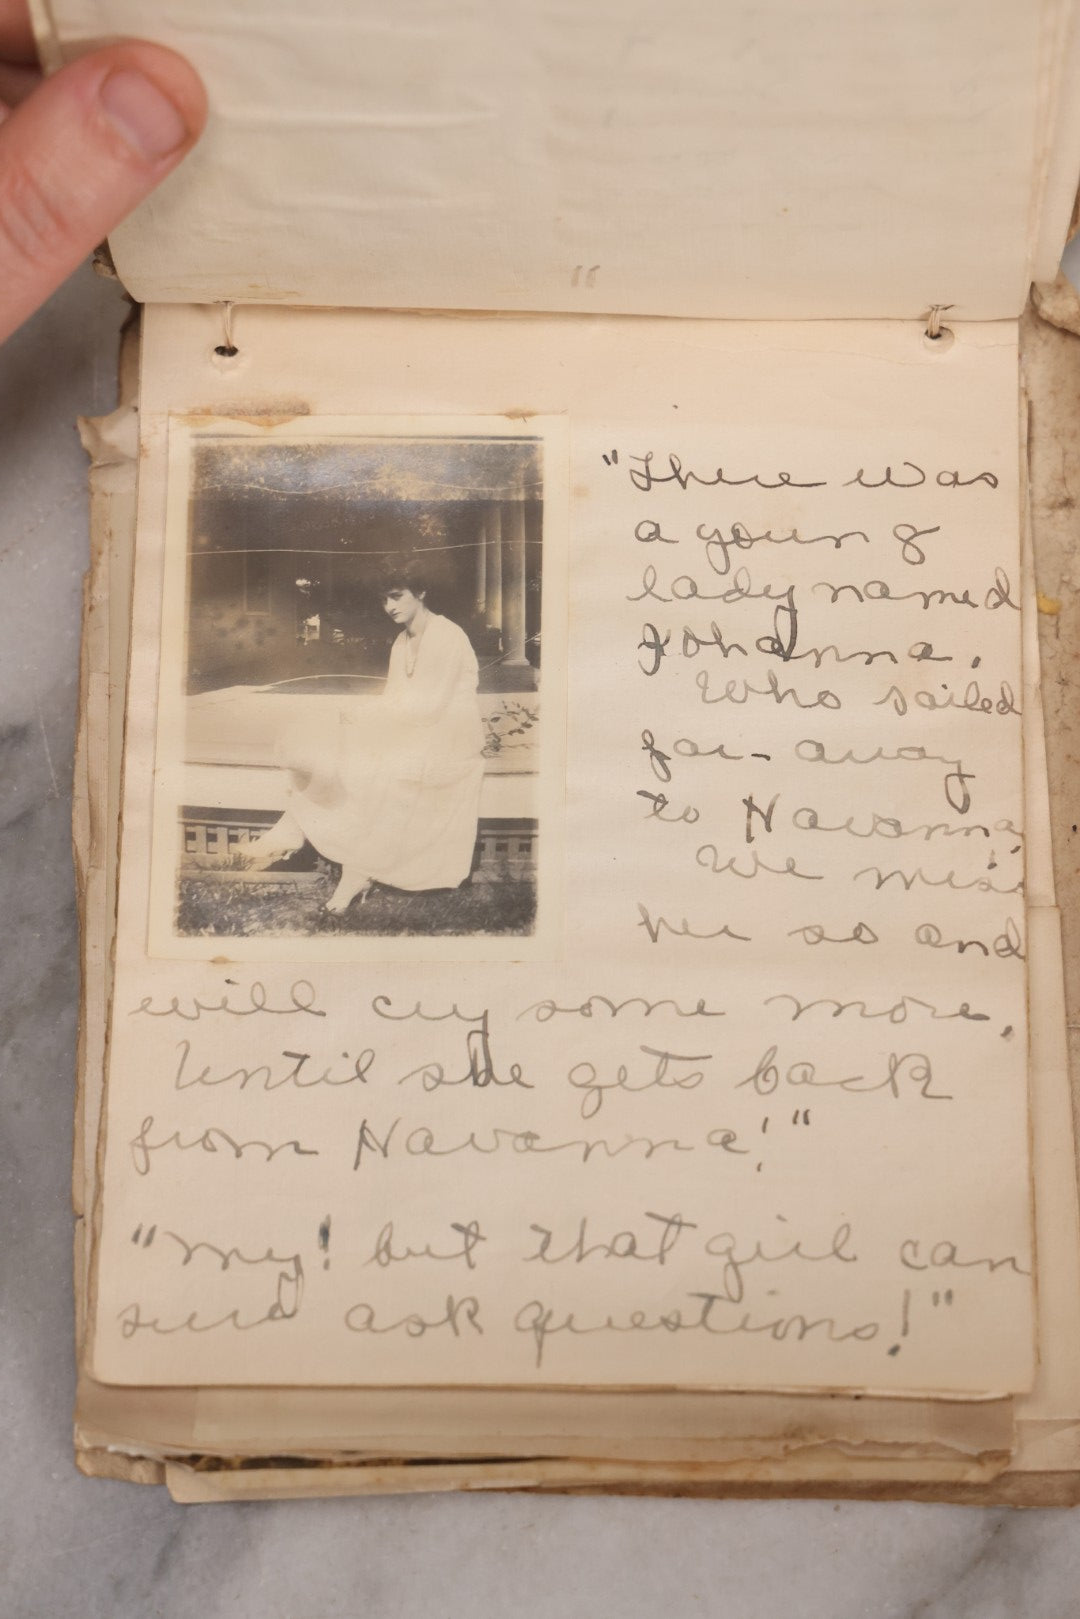 "There was
a young
lady named
Johanna.
Who sailed
far-away
to Havanna,
We miss
her so and
will cry some more,
Until she gets back
from Havanna!"
"My! but that girl can
sure ask questions!"